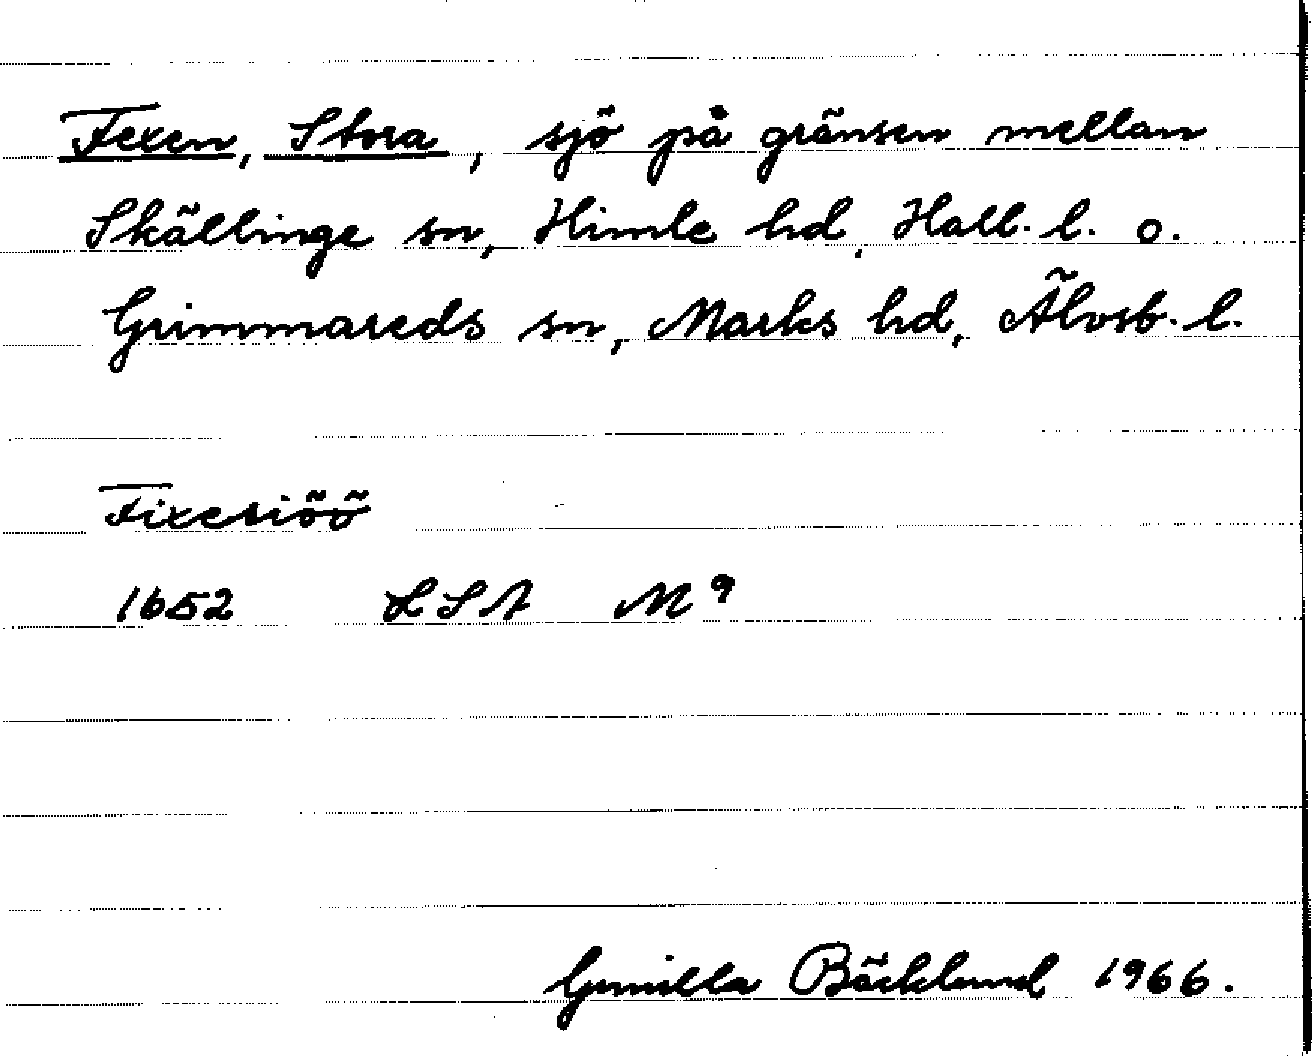 Fexen, Stora, sjö på gränsen mellan
Skällinge sn, Himle hd, Hall. l. o.
Grimmareds sn, Marks hd, Älvsb. l.
Fixesiöö
1652 LSA M9
Gunilla Bäcklund 1966.